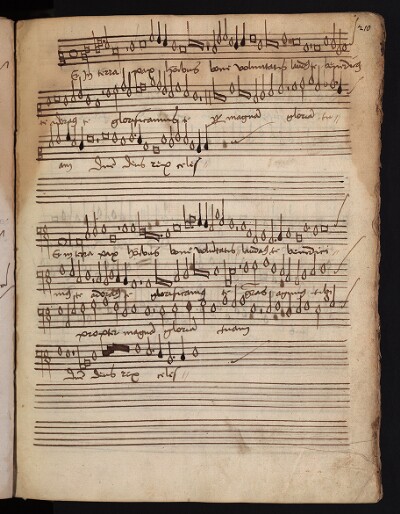 210
Et in terra pax hoibus bone voluntatis laudate benedicim
te adoram te glorificamus te ppt magnā gloriā tu
am Dne deus rex celes
Et in terra pax hoibus bone volutatis laudate benedici
mus te adoram te glorificamus te gras agimus tibi
propter magnā gloriā tuam
Dne deus rex celes